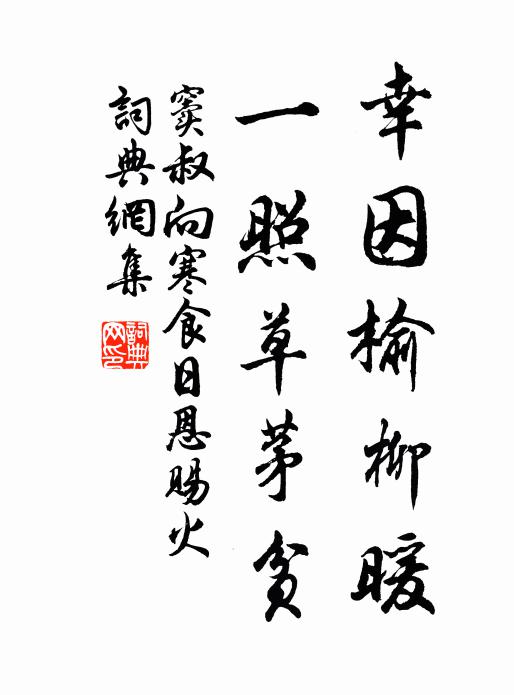 幸因榆柳暖
一照草茅貧
竇叔向寒食日恩賜火
詞典網集
詞典
网印